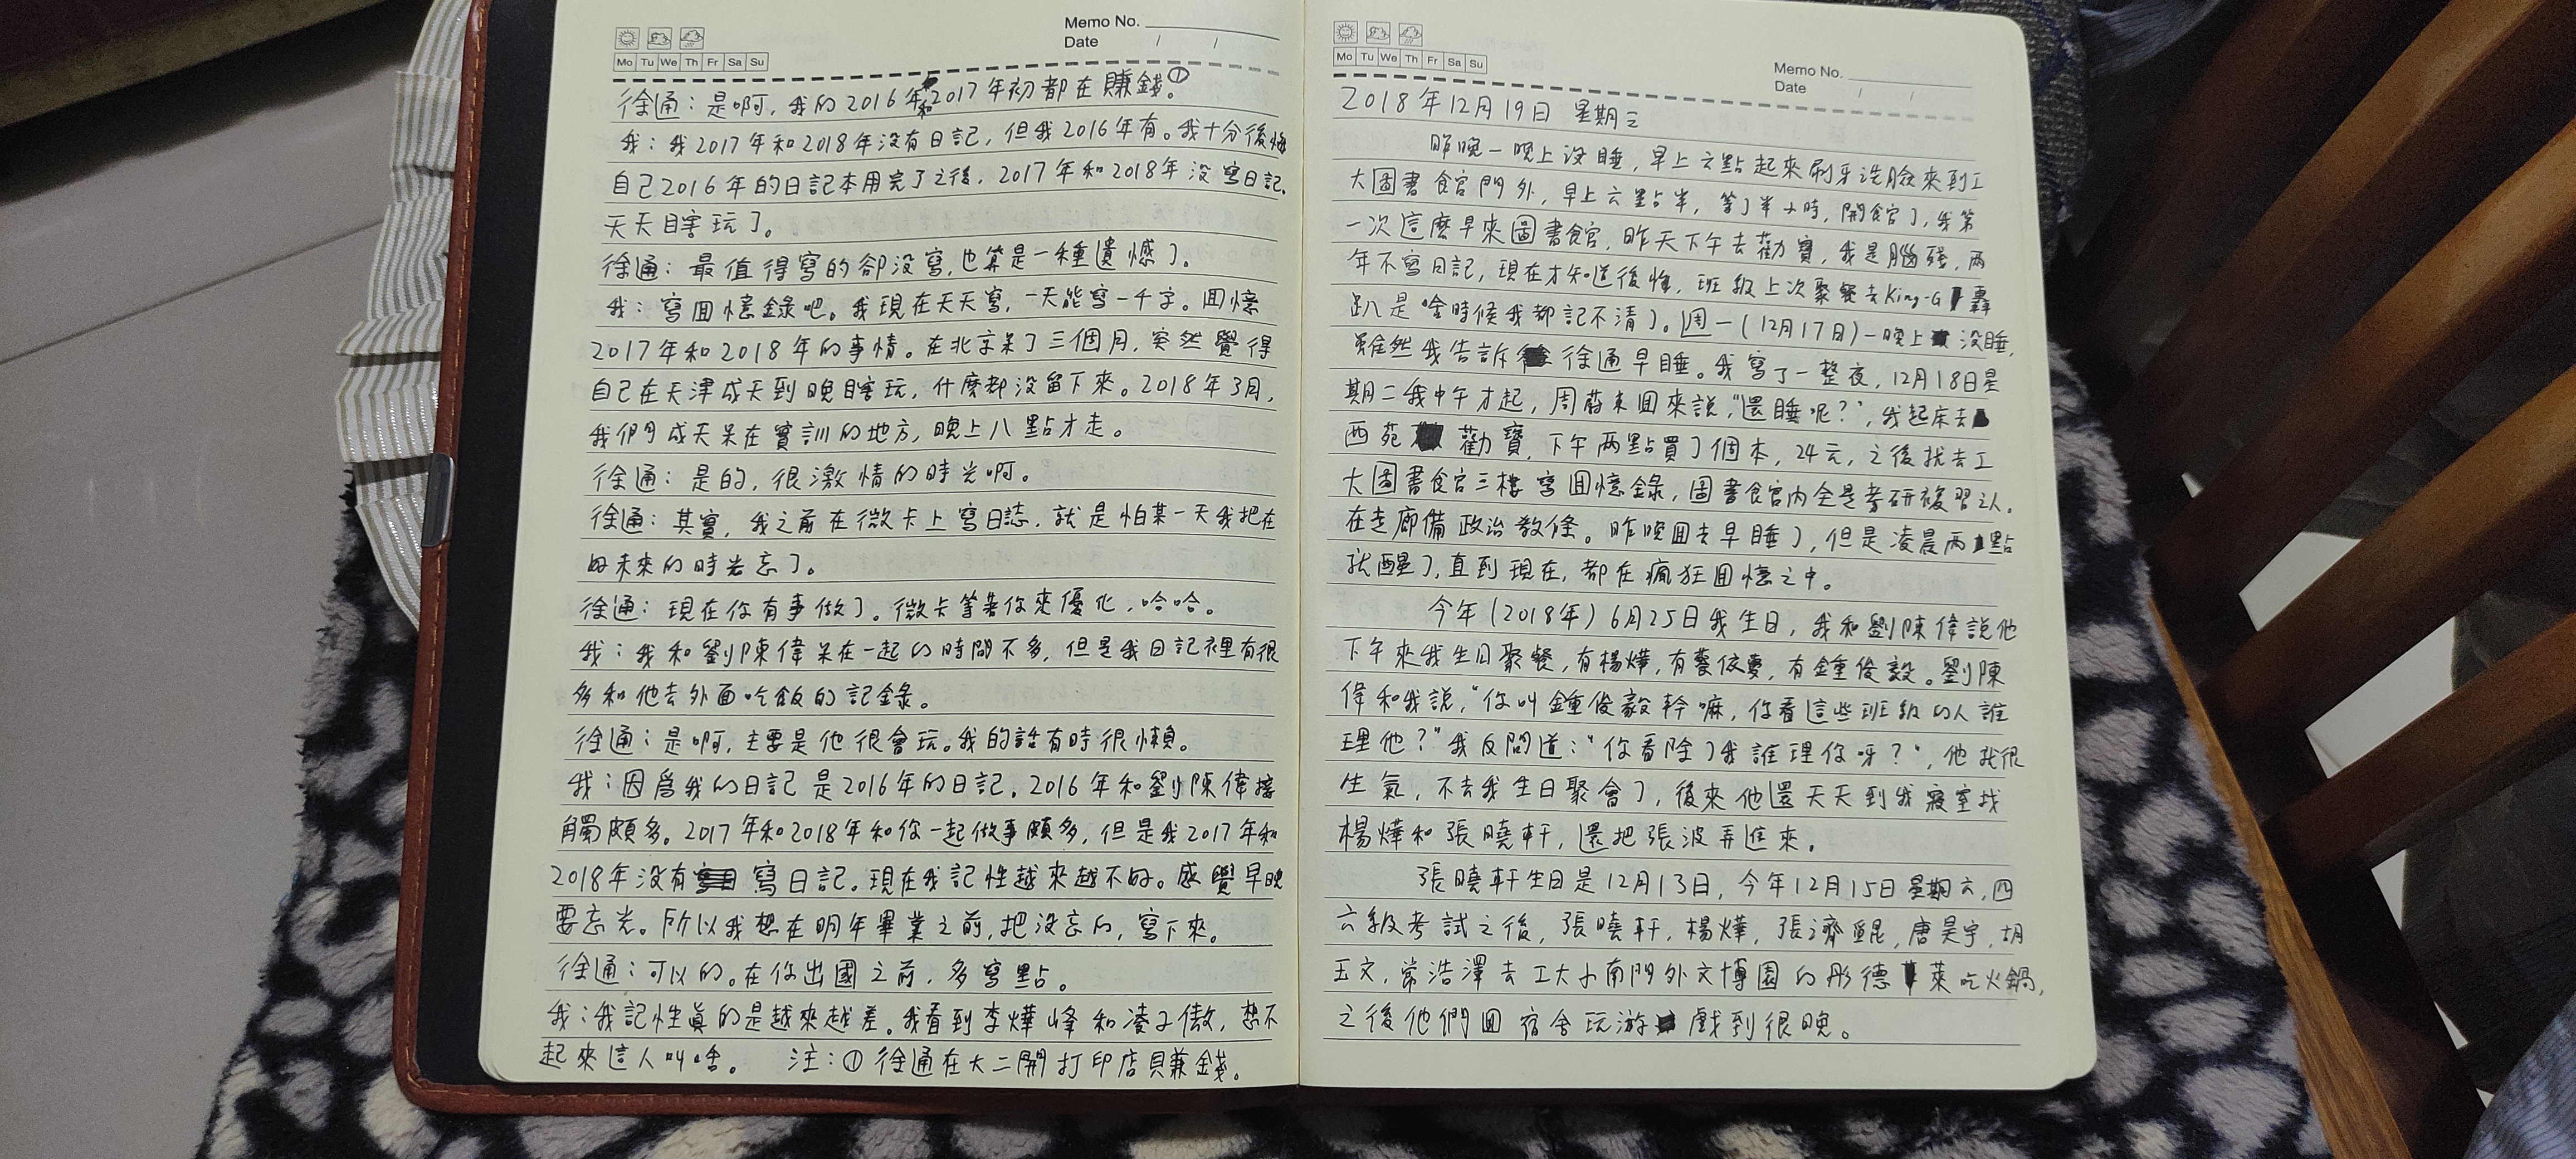 Memo No.
Date / /
Mo Tu We Th Fr Sa Su
徐通：是啊，我的2016年和2017年初都在賺錢①。
我：我2017年和2018年沒有日記，但我2016年有。我十分後悔
自己2016年的日記本用完了之後，2017年和2018年沒寫日記，
天天瞎玩了。
徐通：最值得寫的卻沒寫，也算是一種遺憾了。
我：寫回憶錄吧。我現在天天寫，一天能寫一千字。回憶
2017年和2018年的事情。在北京呆了三個月，突然覺得
自己在天津成天到晚瞎玩，什麼都沒留下來。2018年3月，
我們成天呆在實訓的地方，晚上八點才走。
徐通：是的，很激情的時光啊。
徐通：其實，我之前在微卡上寫日誌，就是怕某一天我把在
的未來的時光忘了。
徐通：現在你有事做了。微卡等著你來優化，哈哈。
我：我和劉陳偉呆在一起的時間不多，但是我日記裡有很
多和他去外面吃飯的記錄。
徐通：是啊，主要是他很會玩。我的話有時很懶。
我：因為我的日記是2016年的日記，2016年和劉陳偉接
觸頗多。2017年和2018年和你一起做事頗多，但是我2017年和
2018年沒有寫日記。現在我記性越來越不好。感覺早晚
要忘光。所以我想在明年畢業之前，把沒忘的，寫下來。
徐通：可以的。在你出國之前，多寫點。
我：我記性真的是越來越差。我看到李燁峰和凌子傲，想不
起來這人叫啥。 注：①徐通在大二開打印店賺錢。
Memo No.
Date / /
Mo Tu We Th Fr Sa Su
2018年12月19日 星期三
昨晚一晚上沒睡，早上六點起來刷牙洗臉來到工
大圖書館門外，早上六點半，等了半小時，開館了，我第
一次這麼早來圖書館，昨天下午去勸寶，我是腦殘，兩
年不寫日記，現在才知道後悔，班級上次聚餐去King-G轟
趴是啥時候我都記不清了。週一（12月17日）一晚上沒睡，
雖然我告訴徐通早睡。我寫了一整夜，12月18日星
期二我中午才起，周蔚東回來說，“還睡呢？”，我起床去
西苑勸寶，下午兩點買了個本，24元，之後就去工
大圖書館三樓寫回憶錄，圖書館內全是考研複習之人。
在走廊備政治教條。昨晚回去早睡了，但是凌晨兩點
就醒了，直到現在，都在瘋狂回憶之中。
今年（2018年）6月25日我生日，我和劉陳偉說他
下午來我生日聚餐，有楊燁，有依夢，有鍾俊毅。劉陳
偉和我說，“你叫鍾俊毅幹嘛，你看這些班級的人誰
理他？”我反問道：“你看除了我誰理你呀？”，他就很
生氣，不去我生日聚會了，後來他還天天到我寢室找
楊燁和張曉軒，還把張波弄進來。
張曉軒生日是12月13日，今年12月15日星期六，四
六級考試之後，張曉軒，楊燁，張濟鯤，唐昊宇，胡
玉文，常浩澤去工大小南門外文博園的彤德萊吃火鍋，
之後他們回宿舍玩游戲到很晚。